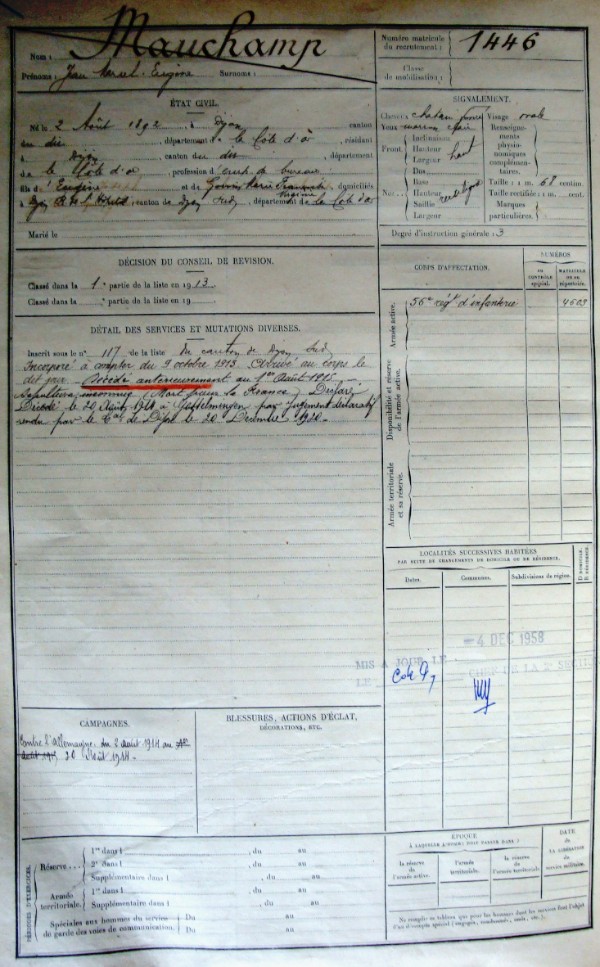 Mauchamp
Nom :
Prénoms : Jean Marcel Eugène Surnoms :
Numéro matricule
du recrutement : 1446
Classe
de mobilisation :
ÉTAT CIVIL.
Né le 2 Août 1892, à Dijon, canton
du dit, département de la Côte d'or, résidant
à Dijon, canton du dit, département
de la Côte d'or, profession d' de bureau
fils d'Eugène et de Marie, domiciliés
à Dijon, canton de Dijon Sud, département de la Côte d'or
Marié le
SIGNALEMENT.
Cheveux : chatain Visage ovale
Yeux marron clair
Renseigne-
ments
physio-
nomiques
complémen-
taires.
Front. Inclinaison
Hauteur
Largeur haut
Nez. Dos
Base
Hauteur
Saillie
Largeur
Taille : 1m. 68 centim.
Taille rectifiée : m. cent.
Marques
particulières :
Degré d'instruction générale : 3
DÉCISION DU CONSEIL DE REVISION.
Classé dans la 1e partie de la liste en 1913
Classé dans la partie de la liste en 19
DÉTAIL DES SERVICES ET MUTATIONS DIVERSES.
Inscrit sous le n° 117 de la liste du canton de Dijon Sud
Incorporé à compter du 9 octobre 1913. Arrivé au corps le
dit jour. Décédé antérieurement au 1er Août 1915
Sépulture inconnue (Mort pour la France) Déclaré
Décédé le 20 Août 1914 à par jugement déclaratif
rendu par le de Dijon le 20 Décembre 1920.
CORPS D'AFFECTATION.
NUMÉROS
DU
CONTRÔLE
spécial.
MATRICULE
OU DU
répertoire.
Armée active.
56e régt d'infanterie 4603
Disponibilité et réserve
de l'armée active.
Armée territoriale
et sa réserve.
LOCALITÉS SUCCESSIVES HABITÉES
PAR SUITE DE CHANGEMENTS DE DOMICILE OU DE RÉSIDENCE.
Dates. Communes. Subdivisions de région. D. DOMICILE. R. RÉSIDENCE.
- 4 DEC 1958
MIS A JOUR LE
LE CHEF DE LA 2e SECTION
CAMPAGNES.
Contre l'Allemagne. du 2 août 1914 au
20 Août 1914.
BLESSURES, ACTIONS D'ÉCLAT,
DÉCORATIONS, ETC.
PÉRIODES D'EXERCICES.
Réserve 1re dans l , du au
2e dans l , du au
Supplémentaire dans l , du au
Armée
territoriale. 1re dans l , du au
Supplémentaire dans l , du au
Spéciales aux hommes du service
de garde des voies de communication. Du au
Du au
ÉPOQUE
À LAQUELLE L'HOMME DOIT PASSER DANS :
la réserve
de l'armée active.
l'armée
territoriale.
la réserve
de l'armée territoriale.
DATE
DE
LA LIBÉRATION
DU
service militaire.
Ne remplir ce tableau que pour les hommes dont les services font l'objet
d'un décompte spécial (engagés, condamnés, omis, etc.).